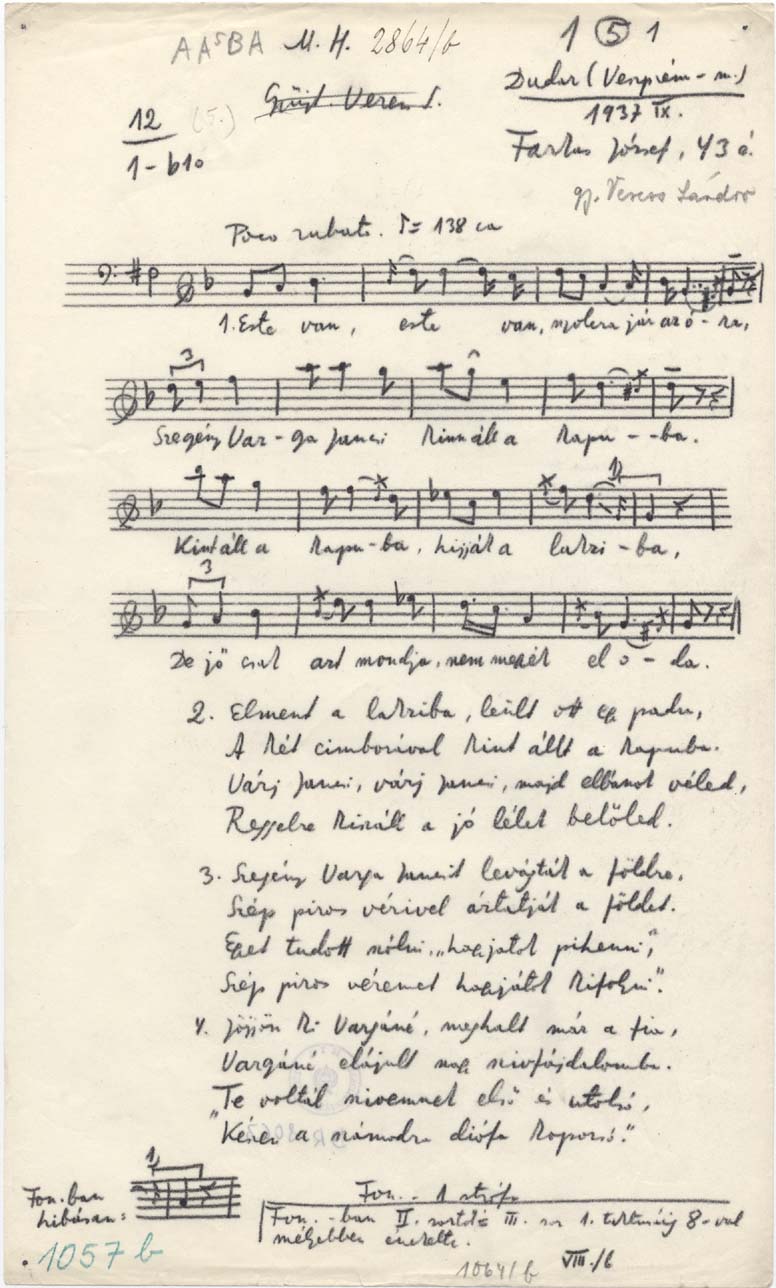 AA⁵BA M. H. 2864/b
1 ⑤ 1
Dudar (Veszprém-m.)
1937 IX.
12 (5.)
1-b10
Gyűjt. Veress S.
Farkas József, 43 é.
gy. Veress Sándor
Poco rubato. = 138 ca
1. Este van, este van, nyolcra jár az ó-ra,
3
Szegény Var-ga Jancsi kinn áll a kapu--ba.
Kint áll a kapu-ba, hijják a lakzi-ba,
3
De jő csak azt mondja, nem mehet el o-da.
2. Elment a lakziba, leült ott egy padra,
A két cimborával kint állt a kapuba.
Várj Jancsi, várj Jancsi, majd elbánok véled,
Reggelre kiszáll a jó lélek belőled.
3. Szegény Varga Jancsit levágták a földre,
Szép piros vérivel áztatják a földet.
Egyet tudott szólni, „hagyjatok pihenni",
Szép piros véremet hagyjátok kifolyni".
4. Jöjjön ki Vargáné, meghalt már a fia,
Vargáné elájult nagy szivfájdalomba.
„Te voltál szivemnek első és utolsó,
Készen a számodra diófa koporsó."
Fon.-ban
hibásan:
Fon. - 1 strófa
Fon. -ban II. sortól = III. sor 1. taktusáig 8-val
mélyebben énekelte.
1057 b
1064/b
VIII./6